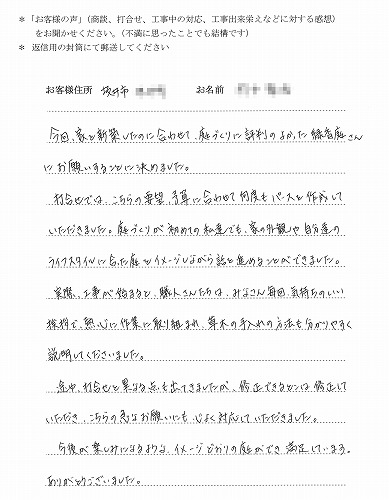 ＊「お客様の声」（商談、打合せ、工事中の対応、工事出来栄えなどに対する感想）
をお聞かせください。（不満に思ったことでも結構です）
＊ 返信用の封筒にて郵送してください
お客様住所 坂井市 お名前
今回、家を新築したのに合わせて、庭づくりに評判のよかった緑香庭さん
にお願いすることに決めました。
打合せでは、こちらの要望、予算に合わせて何度もパースを作成して
いただきました。庭づくりが初めての私達でも、家の外観や自分達の
ライフスタイルに合った庭をイメージしながら話を進めることができました。
実際、工事が始まると、職人さんたちは、みなさん毎回、気持ちのいい
挨拶で、熱心に作業に取り組まれ、草木の手入れの方法も分かりやすく
説明してくださいました。
途中、打合せと異なる点も出てきましたが、修正できるとこは修正して
いただき、こちらの急なお願いにも心よく対応していただきました。
今後が楽しみになるような、イメージどおりの庭ができ満足しています。
ありがとうございました。